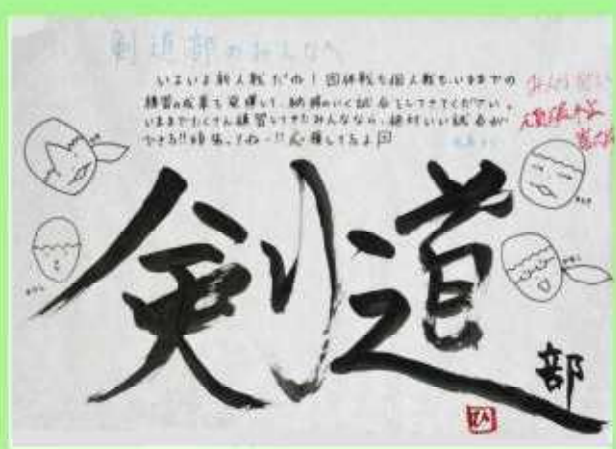 剣道部のみんなへ
いよいよ新人戦だね！団体戦も個人戦も、いままでの
練習の成果を発揮して、納得のいく試合をしてきてください。
いままでたくさん練習してきたみんななら、絶対いい試合が
できる!!頑張ってねー!!応援してるよ
剣道
部
ひ